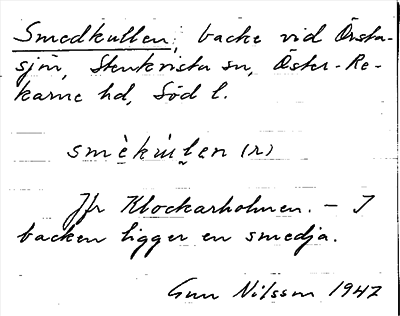 Smedkullen, backe vid Örsta-
sjön, Stenkvista sn, Öster-Re-
karne hd, Söd l.
smèkúl̬en (r)
Jfr Klockarholmen. – I
backen ligger en smedja.
Gun Nilsson 1947